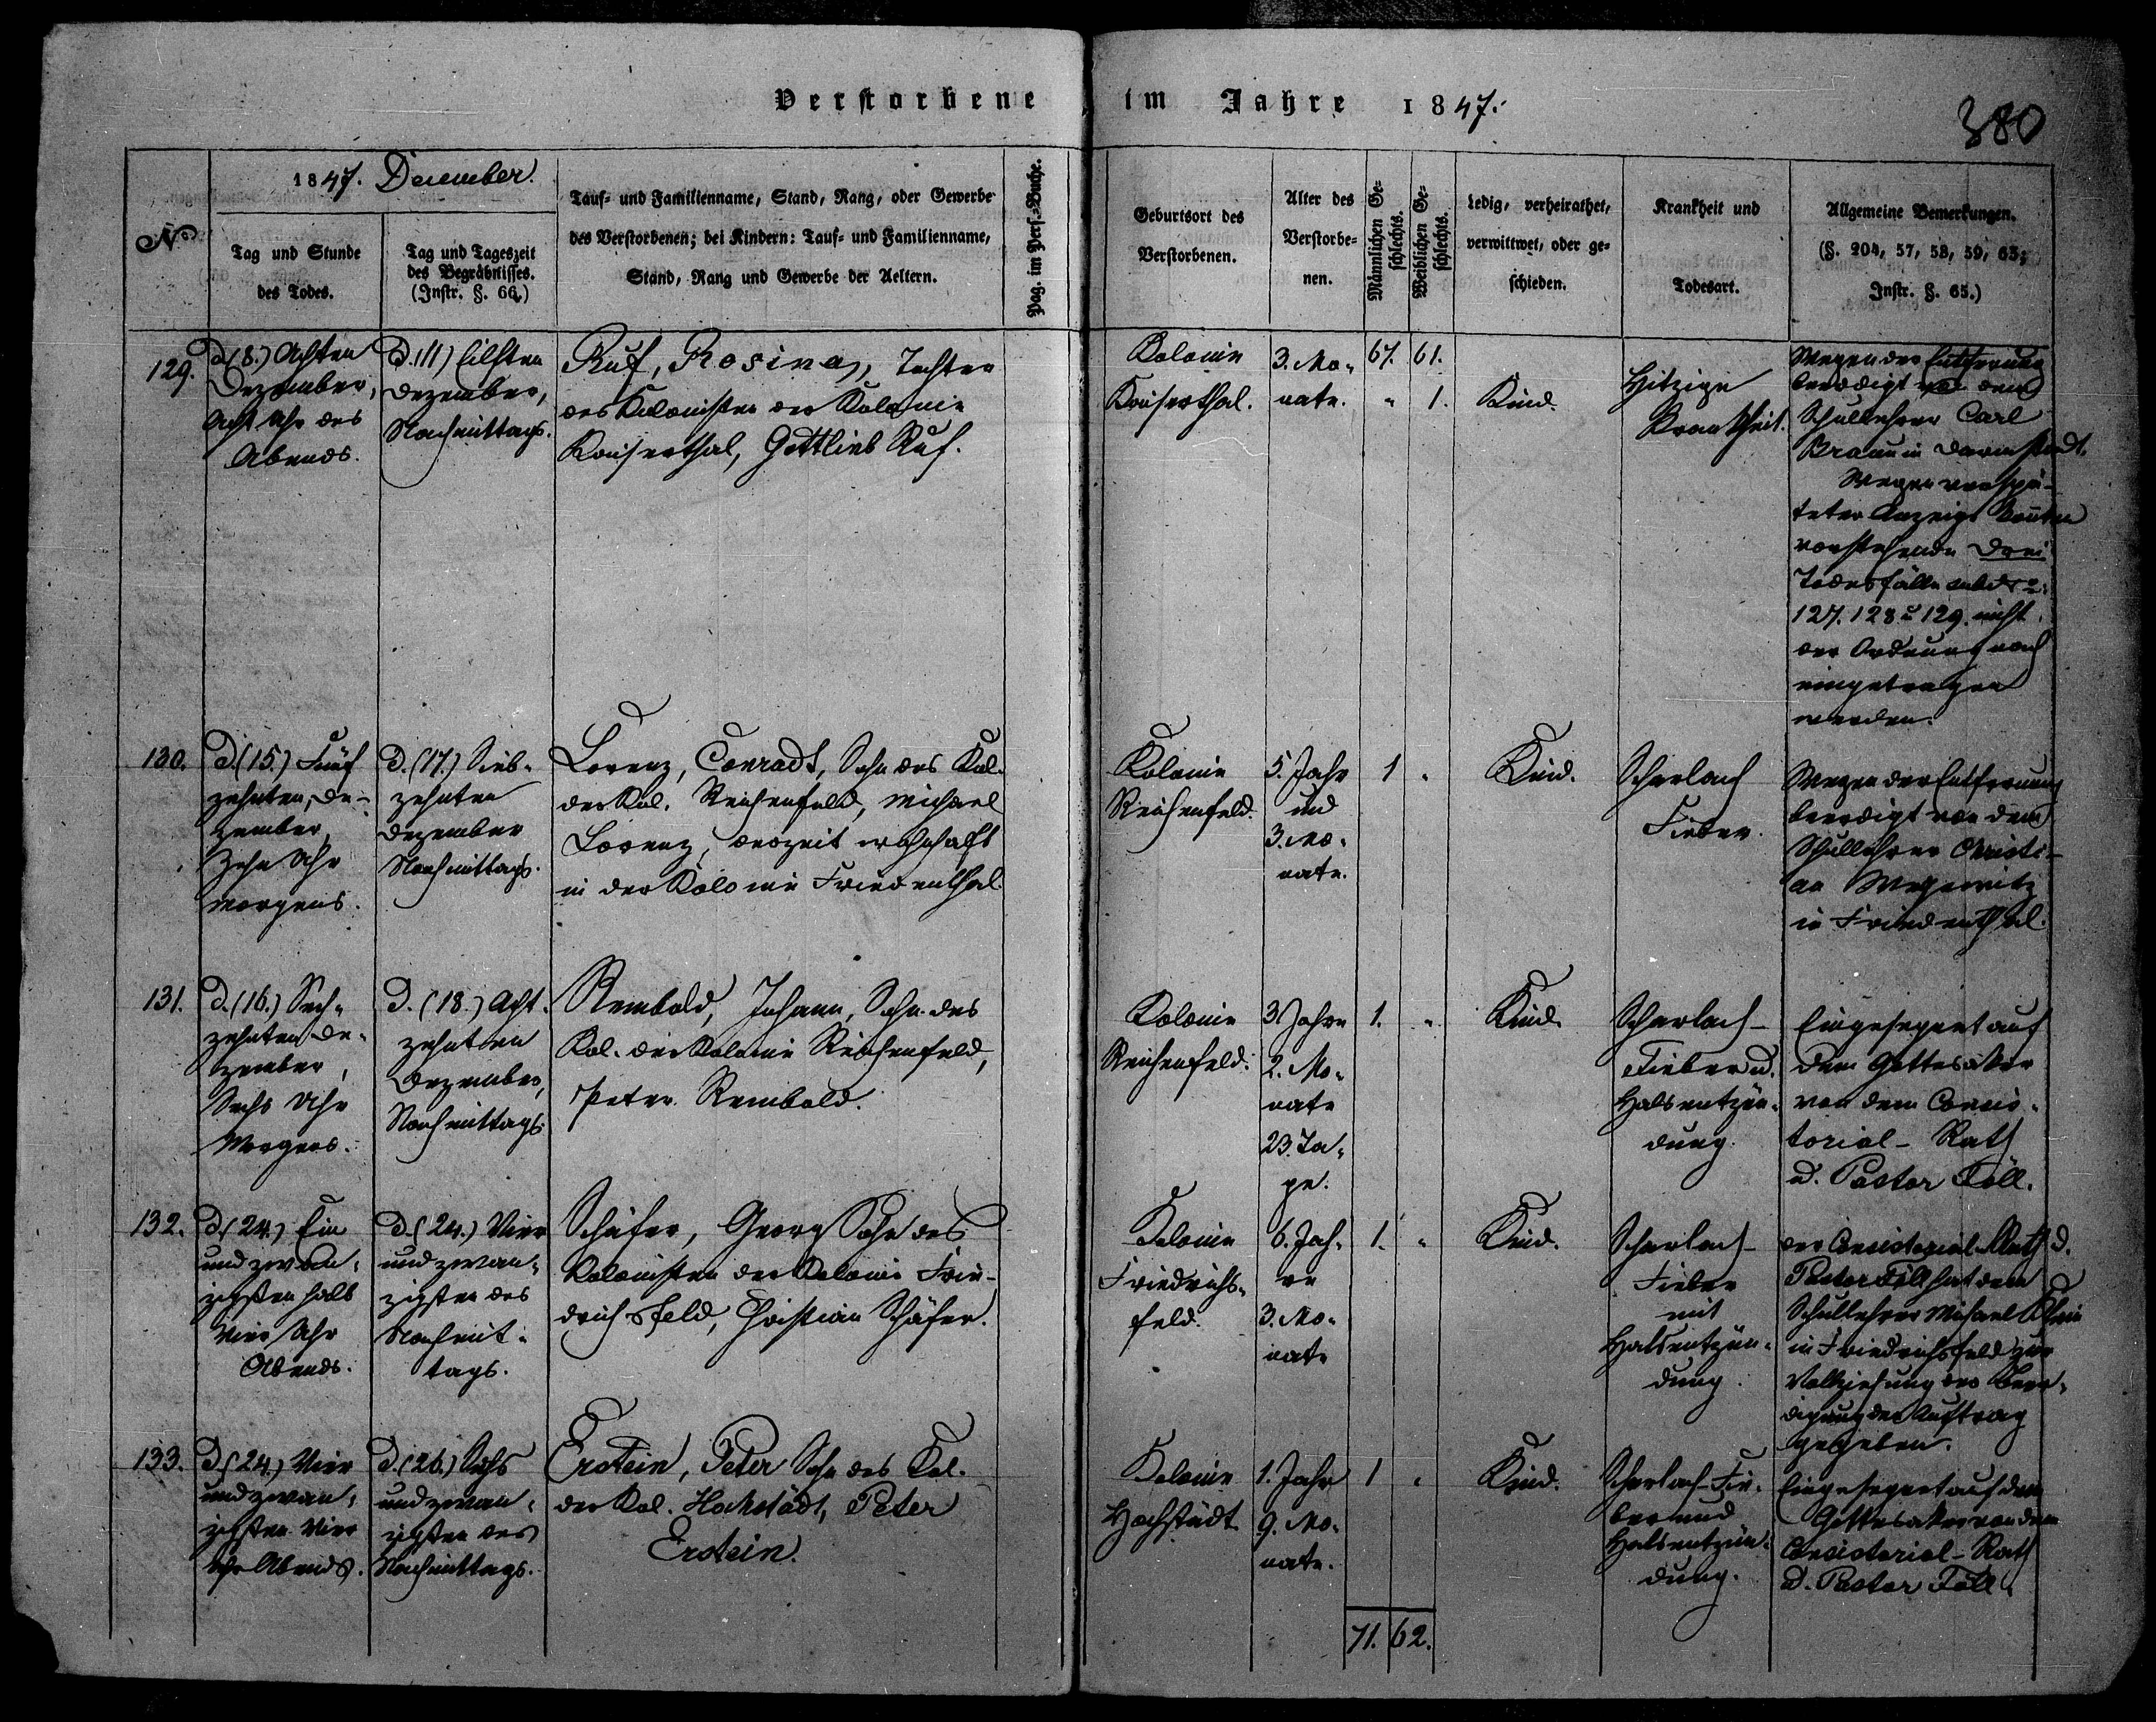 Verstorbene im Jahre 1847.
380
No
1847. December.
Tag und Stunde
des Todes.
Tag und Tageszeit
des Begräbnisses.
(Instr. §. 66.)
Tauf- und Familienname, Stand, Rang, oder Gewerbe
des Verstorbenen; bei Kindern: Tauf- und Familienname,
Stand, Rang und Gewerbe der Aeltern.
Pag. im Pers.-Buche.
Geburtsort des
Verstorbenen.
Alter des
Verstorbe-
nen.
Männlichen Ge-
schlechts.
Weiblichen Ge-
schlechts.
Ledig, verheirathet,
verwittwet, oder ge-
schieden.
Krankheit und
Todesart.
Allgemeine Bemerkungen.
(§. 204, 57, 58, 59, 63;
Instr. §. 65.)
129.
D. (8.) Achten
Dezember,
Acht Uhr des
Abends.
D. (11) Eilften
Dezember,
Nachmittags.
Ruf, Rosina, Tochter
des Kolonisten der Kolonie
Kaiserthal, Gottlieb Ruf.
Kolonie
Kaiserthal.
3. Mo-
nate.
67. 61.
" 1.
Kind.
Hitzige
Krankheit.
Wegen der Entfernung
beerdigt von dem
Schullehrer Carl
Braun in Darmstadt.
Wegen verspä-
teter Anzeige konnten
vorstehende drei
Todesfälle sub No
127. 128 u 129. nicht
der Ordnung nach
eingetragen
werden.
130.
D. (15.) Fünf
zehnten De-
zember,
Zehn Uhr
Morgens.
D. (17.) Sieb-
zehnten
Dezember
Nachmittags.
Lorenz, Conradt, Sohn des Kol.
der Kol. Reichenfeld, Michael
Lorenz, derzeit wohnhaft
in der Kolonie Friedenthal.
Kolonie
Reichenfeld.
5. Jahr
und
3. Mo-
nate.
1 "
Kind.
Scharlach
Fieber.
Wegen der Entfernung
beerdigt von dem
Schullehrer Christi-
an
in Friedenthal.
131.
D. (16.) Sech-
zehnten De-
zember,
Sechs Uhr
Morgens.
D. (18.) Acht-
zehnten
Dezember,
Nachmittags
Rembold, Johann, Sohn des
Kol. der Kolonie Reichenfeld,
Peter Rembold.
Kolonie
Reichenfeld.
3 Jahre
2. Mo-
nate
23. Ta-
ge.
1. "
Kind.
Scharlach-
Fieber u.
Halsentzün-
dung.
Eingesegnet auf
dem Gottesacker
von dem Consis-
torial-Rath
u. Pastor Föll.
132.
D. (24.) Ein
und zwan-
zigsten halb
Vier Uhr
Abends.
D. (24.) Vier
und zwan-
zigsten des
Nachmit-
tags.
Schäfer, Georg Sohn des
Kolonisten der Kolonie Frie-
drichsfeld, Christian Schäfer.
Kolonie
Friedrichs-
feld.
6. Jah-
re
3. Mo-
nate
1. "
Kind.
Scharlach-
Fieber
mit
Halsentzün-
dung.
der Consistorial-Rath u.
Pastor Föll hat dem
Schullehrer Michael Klein
in Friedrichsfeld zur
Vollziehung der Beer-
digung den Auftrag
gegeben.
133.
D. (24.) Vier
und zwan-
zigsten Vier
Uhr Abends.
D. (26.) Sechs
und zwan-
zigsten des
Nachmittags.
Erstein, Peter Sohn des Kol.
der Kol. Hochstädt, Peter
Erstein.
Kolonie
Hochstädt
1. Jahr
9. Mo-
nate.
1 "
Kind.
Scharlach-Fie-
ber und
Halsentzün-
dung.
Eingesegnet auf dem
Gottesacker von dem
Consistorial-Rath
u. Pastor Föll.
71. 62.